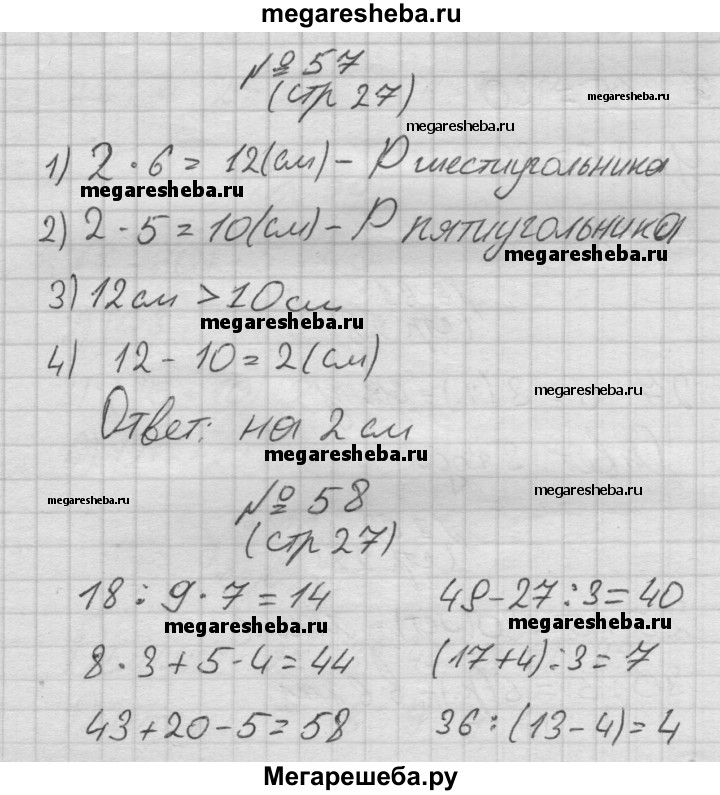 megaresheba.ru
№ 57
(стр 27)
megaresheba.ru
megaresheba.ru
1) 2 · 6 = 12(см) - Р шестиугольника
megaresheba.ru
2) 2 · 5 = 10(см) - Р пятиугольника
megaresheba.ru
3) 12см > 10см
megaresheba.ru
4) 12 - 10 = 2(см)
megaresheba.ru
Ответ: на 2 см
megaresheba.ru
megaresheba.ru
№ 58
megaresheba.ru
(стр 27)
18 : 9 · 7 = 14 49 - 27 : 3 = 40
megaresheba.ru megaresheba.ru
8 · 3 + 5 · 4 = 44 (17 + 4) : 3 = 7
43 + 20 - 5 = 58 36 : (13 - 4) = 4
Мегарешеба.ру